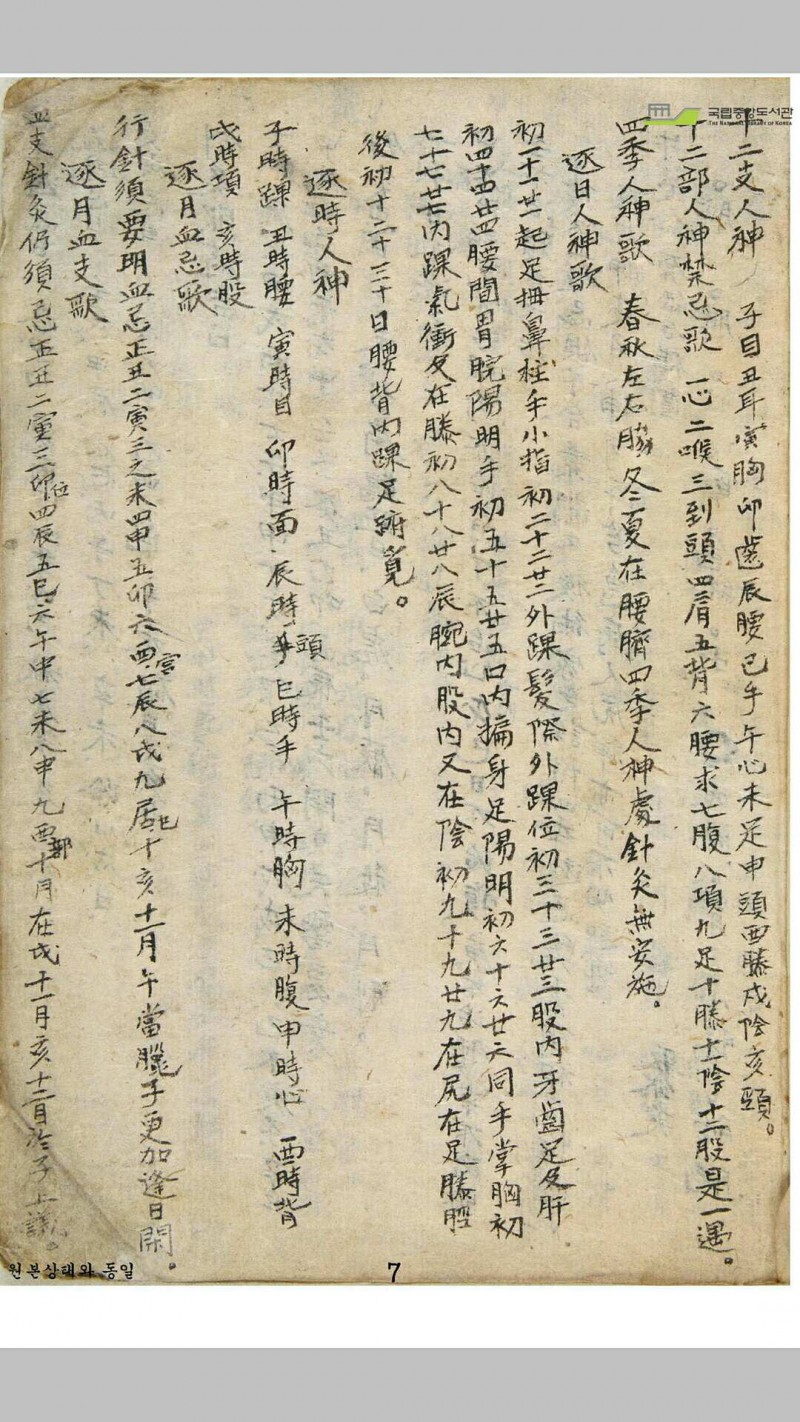 十二支人神 子目丑耳寅胸卯齒辰腰巳手午心未足申頭酉膝戌陰亥頸。
十二部人神禁忌歌 一心二喉三到頭四肩五背六腰求七腹八項九足十膝十一陰十二股是一遇。
四季人神歌 春秋左右脇冬夏在腰臍四季人神處針灸無妄施。
逐日人神歌
初一十一廿一起足拇鼻柱手小指初二十二廿二外踝髮際外踝位初三十三廿三股內牙齒足及肝
初四十四廿四腰間胃脘陽明手初五十五廿五口內遍身足陽明初六十六廿六同手掌胸初
七十七廿七內踝氣衝及在膝初八十八廿八辰腕內股內又在陰初九十九廿九在尻在足膝脛
後初十二十三十日腰背內踝足跗覓。
逐時人神
子時踝 丑時腰 寅時目 卯時面 辰時頭 巳時手 午時胸 未時腹 申時心 酉時背
戌時項 亥時股
逐月血忌歌
行針須要明血忌正丑二寅三之未四申五卯六酉宮七辰八戌九居巳十亥十一月午當臘子更加逢日閉。
逐月血支歌
血支針灸仍須忌正丑二寅三卯位四辰五巳六午中七未八申九酉部十月在戌十一月亥十二月於子上議。
국립중앙도서관
THE NATIONAL LIBRARY OF KOREA
원본상태와 동일
7